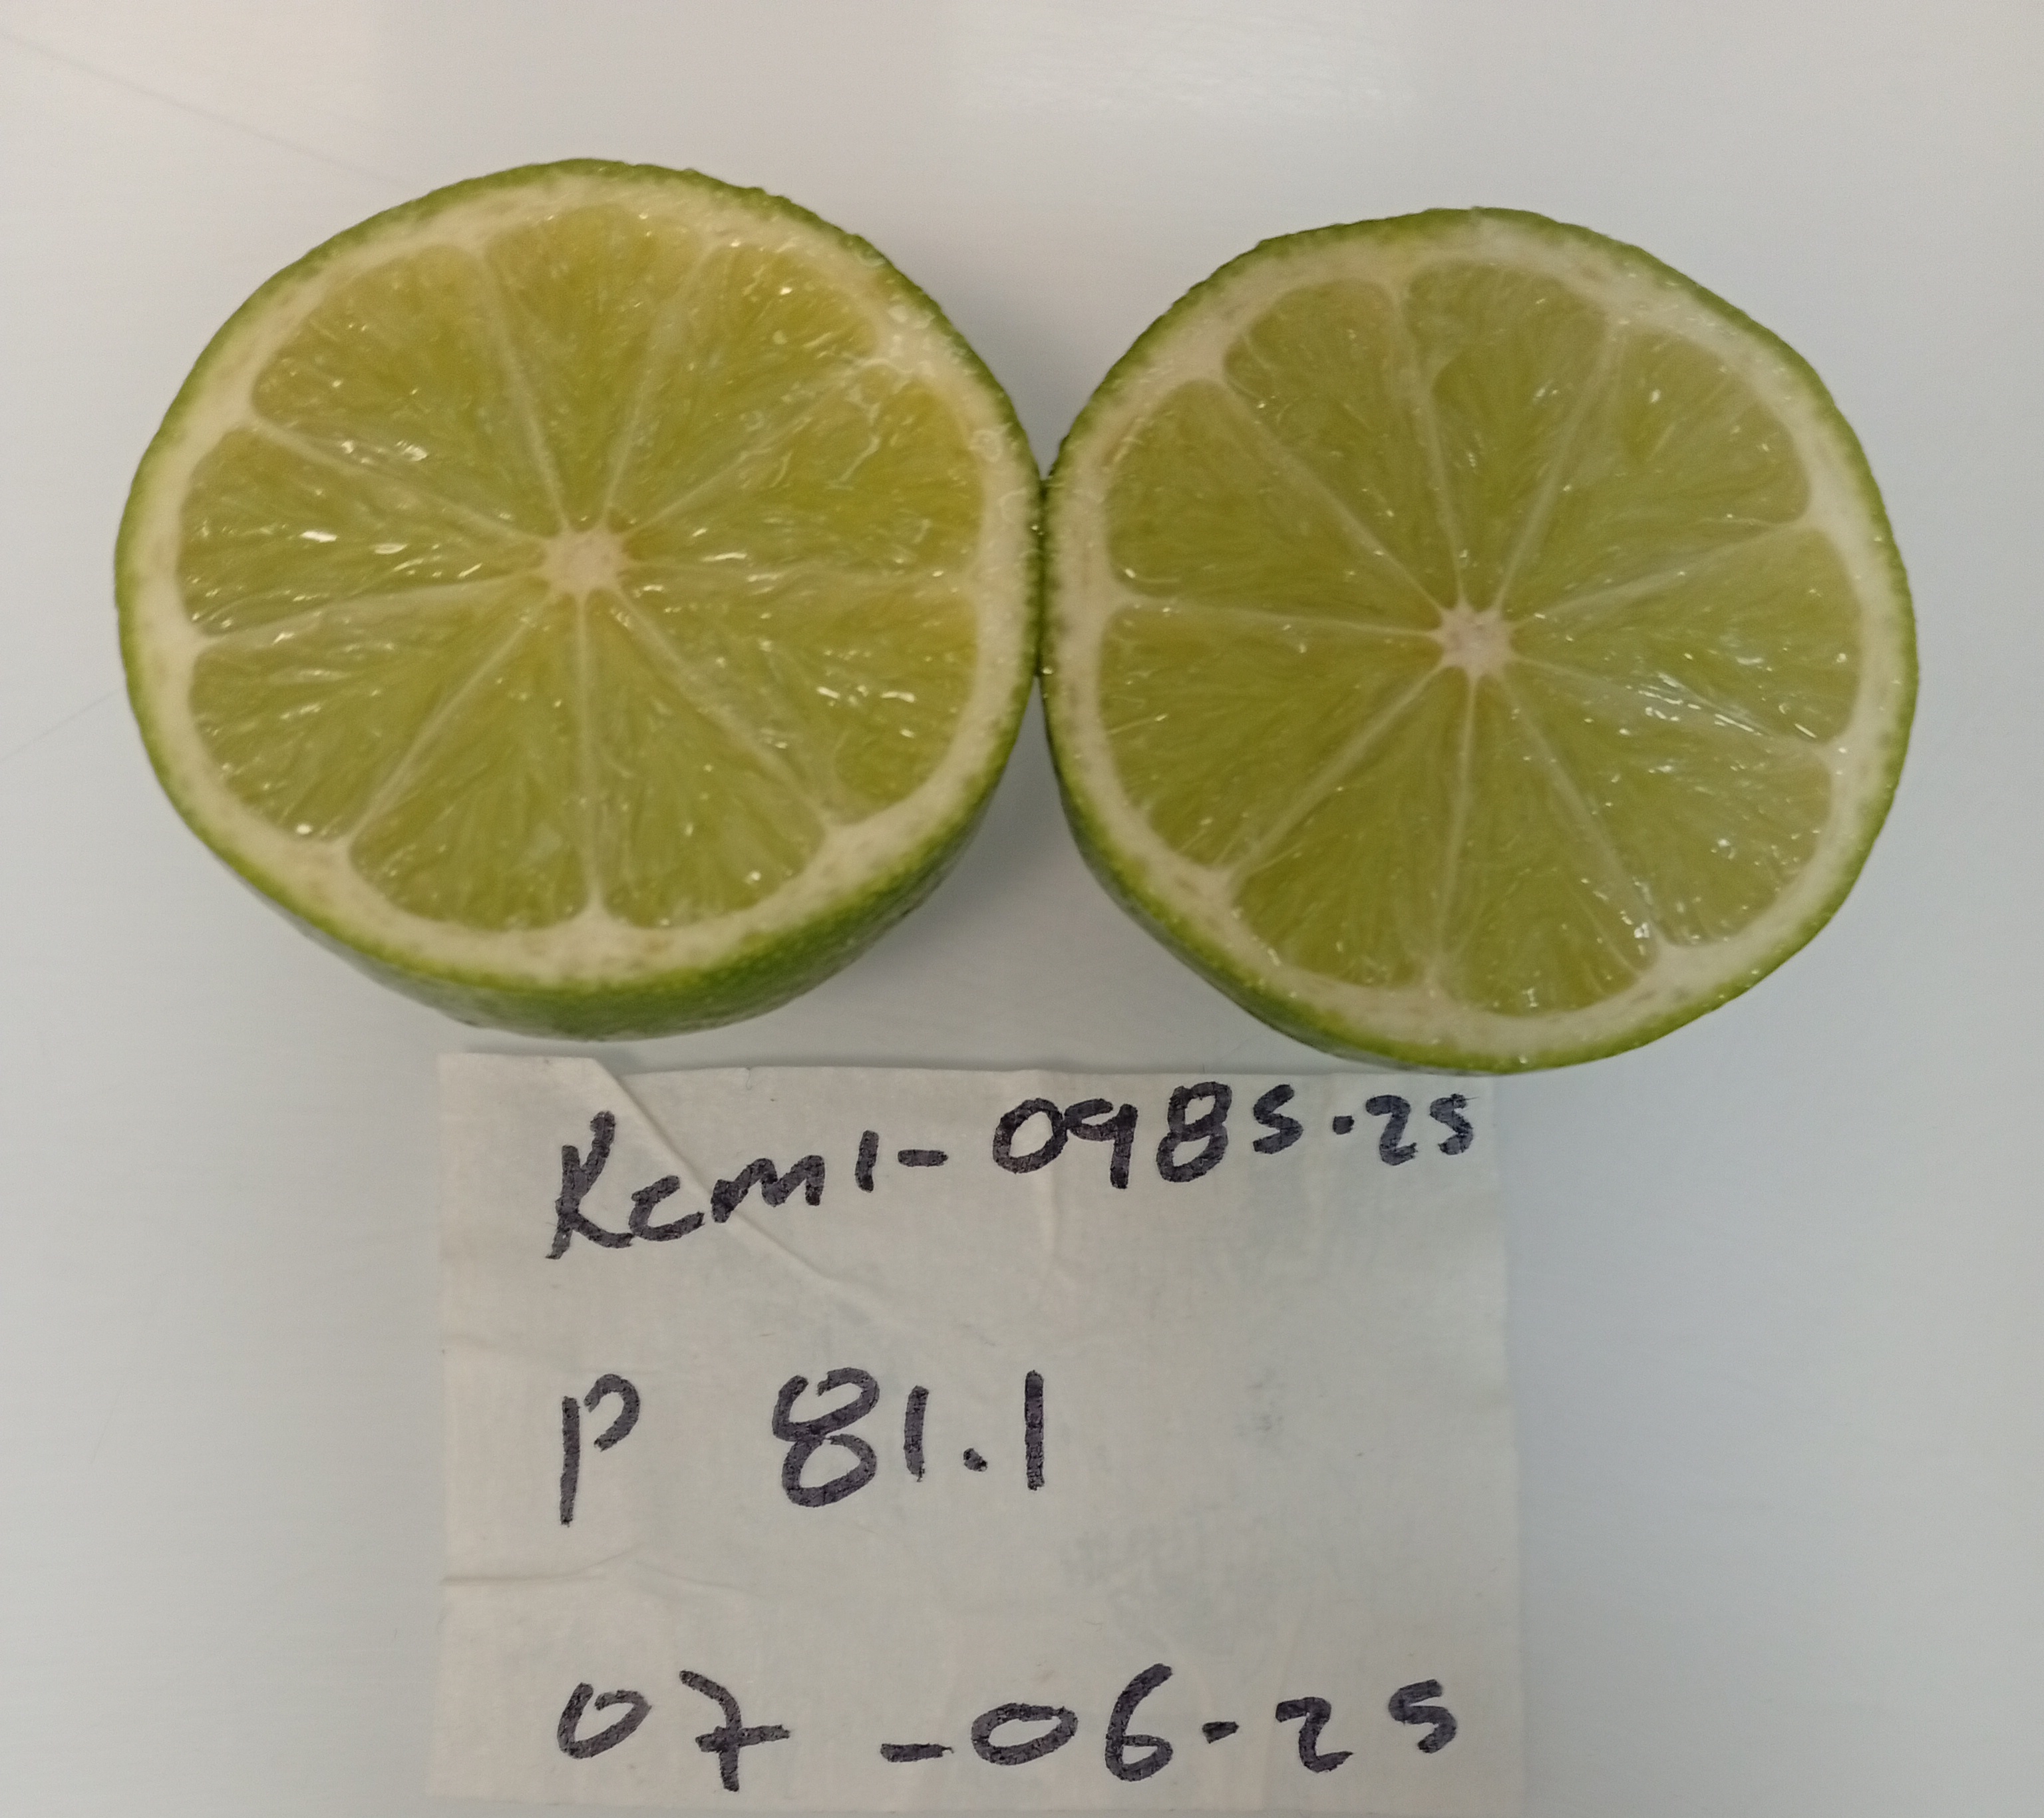 Rcm1-0985.25
P 81.1
07-06-25